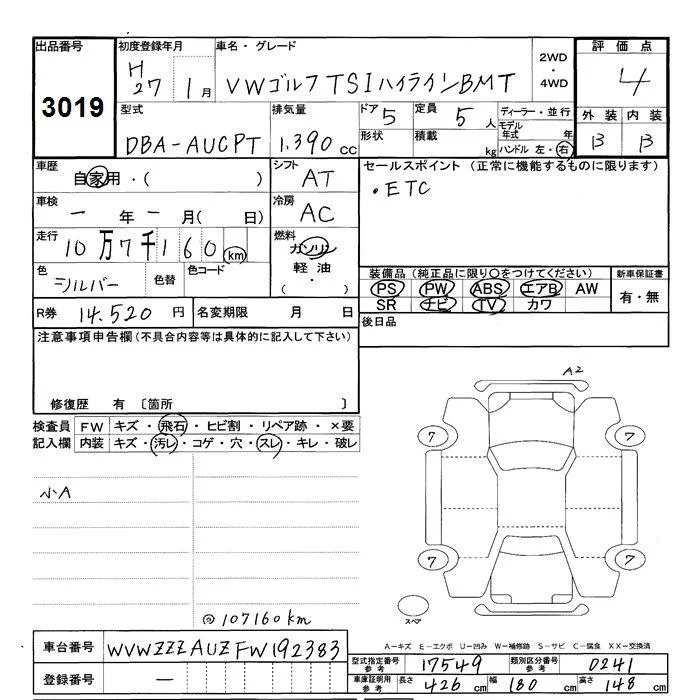 出品番号
3019
初度登録年月
H 27 1月
車名・グレード
VWゴルフTSIハイラインBMT
2WD
・
4WD
評価点
4
型式
DBA-AUCPT
排気量
1.390cc
ドア 5
定員 5人
形状
積載 kg
ディーラー・並行
モデル年式 年
ハンドル 左・右
外装 内装
B B
車歴
自家用・( )
シフト
AT
セールスポイント (正常に機能するものに限ります)
・ETC
車検
一年一月(日)
冷房
AC
走行
10万7千160km
燃料
ガソリン
軽油
( ・ )
色
シルバー
色替
色コード
装備品(純正品に限り○をつけてください)
PS PW ABS エアB AW
SR ナビ TV カワ
新車保証書
有・無
R券 14.520円
名変期限 月 日
後日品
注意事項申告欄(不具合内容等は具体的に記入して下さい)
修復歴 有 〔箇所 〕
検査員 FW キズ・飛石・ヒビ割・リペア跡・×要
記入欄 内装 キズ・汚レ・コゲ・穴・スレ・キレ・破レ
小A
A2
7 7
7 7
スペア
◎107160km
車台番号 WVWZZZAUZFW192383
登録番号 —
A-キズ E-エクボ U-凹み W-補修跡 S-サビ C-腐食 XX-交換済
型式指定番号 参考 17549
類別区分番号 参考 0241
車庫証明用 参考 長さ 426cm 幅 180cm 高さ 148cm